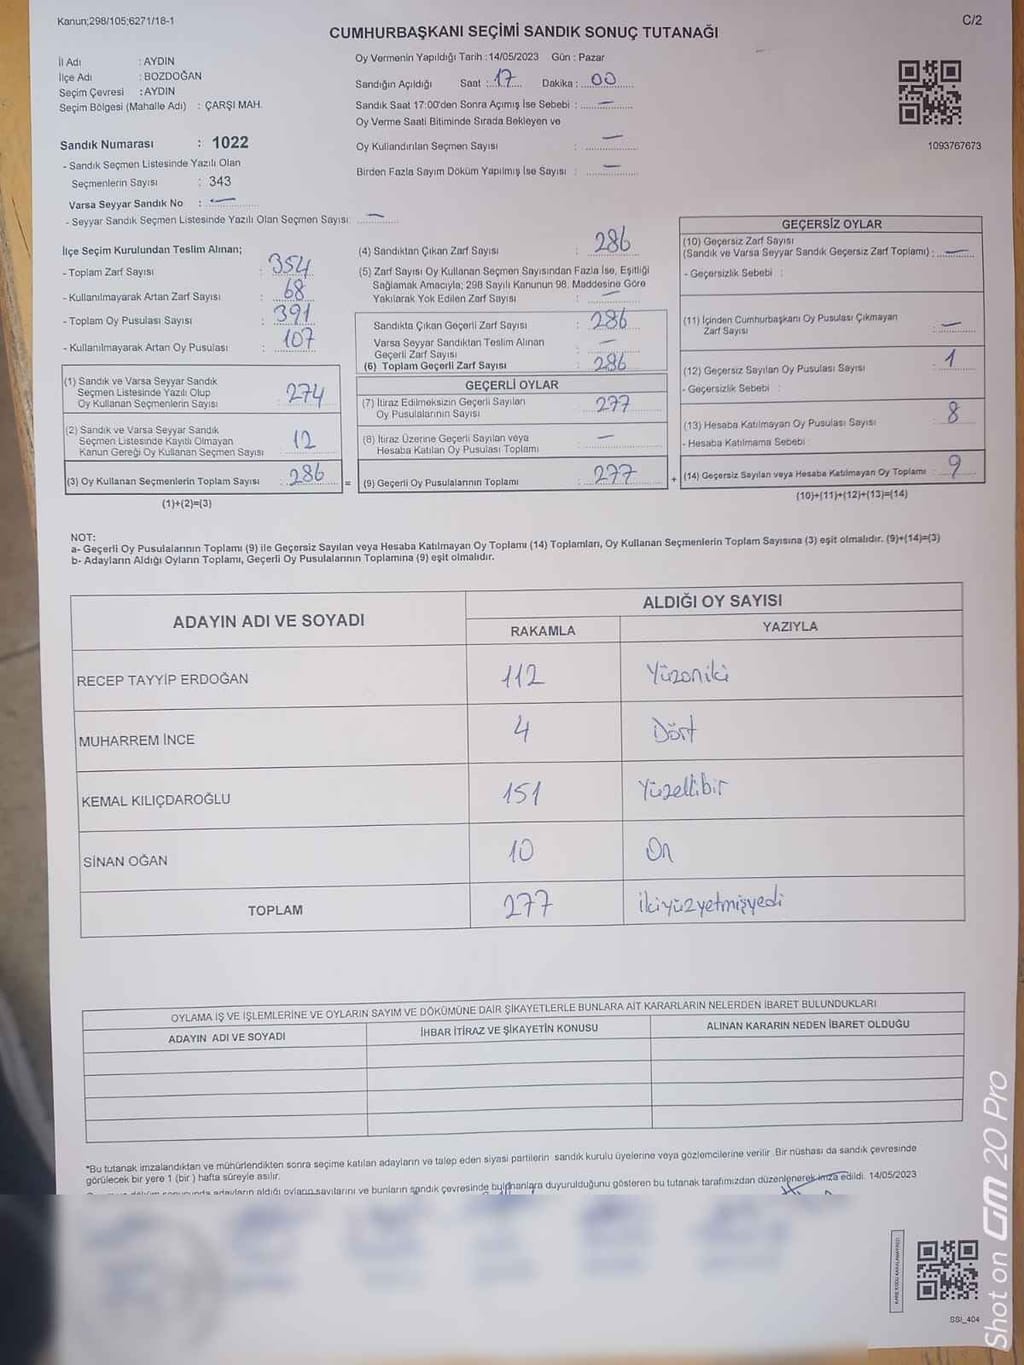 Kanun;298/105;6271/18-1
C/2
CUMHURBAŞKANI SEÇİMİ SANDIK SONUÇ TUTANAĞI
İl Adı : AYDIN
İlçe Adı : BOZDOĞAN
Seçim Çevresi : AYDIN
Seçim Bölgesi (Mahalle Adı) : ÇARŞI MAH.
Sandık Numarası : 1022
- Sandık Seçmen Listesinde Yazılı Olan
Seçmenlerin Sayısı : 343
Varsa Seyyar Sandık No : —
- Seyyar Sandık Seçmen Listesinde Yazılı Olan Seçmen Sayısı: —
Oy Vermenin Yapıldığı Tarih :14/05/2023 Gün : Pazar
Sandığın Açıldığı Saat : 17 Dakika : 00
Sandık Saat 17:00'den Sonra Açımış İse Sebebi : —
Oy Verme Saati Bitiminde Sırada Bekleyen ve
Oy Kullandırılan Seçmen Sayısı : —
Birden Fazla Sayım Döküm Yapılmış İse Sayısı : —
1093767673
İlçe Seçim Kurulundan Teslim Alınan;
- Toplam Zarf Sayısı : 354
- Kullanılmayarak Artan Zarf Sayısı : 68
- Toplam Oy Pusulası Sayısı : 391
- Kullanılmayarak Artan Oy Pusulası : 107
(1) Sandık ve Varsa Seyyar Sandık
Seçmen Listesinde Yazılı Olup
Oy Kullanan Seçmenlerin Sayısı : 274
(2) Sandık ve Varsa Seyyar Sandık
Seçmen Listesinde Kayıtlı Olmayan
Kanun Gereği Oy Kullanan Seçmen Sayısı : 12
(3) Oy Kullanan Seçmenlerin Toplam Sayısı : 286 =
(1)+(2)=(3)
(4) Sandıktan Çıkan Zarf Sayısı : 286
(5) Zarf Sayısı Oy Kullanan Seçmen Sayısından Fazla İse, Eşitliği
Sağlamak Amacıyla; 298 Sayılı Kanunun 98. Maddesine Göre
Yakılarak Yok Edilen Zarf Sayısı : —
Sandıkta Çıkan Geçerli Zarf Sayısı : 286
Varsa Seyyar Sandıktan Teslim Alınan
Geçerli Zarf Sayısı : —
(6) Toplam Geçerli Zarf Sayısı : 286
GEÇERLİ OYLAR
(7) İtiraz Edilmeksizin Geçerli Sayılan
Oy Pusulalarının Sayısı : 277
(8) İtiraz Üzerine Geçerli Sayılan veya
Hesaba Katılan Oy Pusulası Toplamı : —
(9) Geçerli Oy Pusulalarının Toplamı : 277 +
GEÇERSİZ OYLAR
(10) Geçersiz Zarf Sayısı
(Sandık ve Varsa Seyyar Sandık Geçersiz Zarf Toplamı) : —
- Geçersizlik Sebebi :
(11) İçinden Cumhurbaşkanı Oy Pusulası Çıkmayan
Zarf Sayısı : —
(12) Geçersiz Sayılan Oy Pusulası Sayısı : 1
- Geçersizlik Sebebi :
(13) Hesaba Katılmayan Oy Pusulası Sayısı : 8
- Hesaba Katılmama Sebebi :
(14) Geçersiz Sayılan veya Hesaba Katılmayan Oy Toplamı : 9
(10)+(11)+(12)+(13)=(14)
NOT:
a- Geçerli Oy Pusulalarının Toplamı (9) ile Geçersiz Sayılan veya Hesaba Katılmayan Oy Toplamı (14) Toplamları, Oy Kullanan Seçmenlerin Toplam Sayısına (3) eşit olmalıdır. (9)+(14)=(3)
b- Adayların Aldığı Oyların Toplamı, Geçerli Oy Pusulalarının Toplamına (9) eşit olmalıdır.
ADAYIN ADI VE SOYADI ALDIĞI OY SAYISI
RAKAMLA YAZIYLA
RECEP TAYYİP ERDOĞAN 112 Yüzoniki
MUHARREM İNCE 4 Dört
KEMAL KILIÇDAROĞLU 151 Yüzellibir
SİNAN OĞAN 10 On
TOPLAM 277 İkiyüzyetmişyedi
OYLAMA İŞ VE İŞLEMLERİNE VE OYLARIN SAYIM VE DÖKÜMÜNE DAİR ŞİKAYETLERLE BUNLARA AİT KARARLARIN NELERDEN İBARET BULUNDUKLARI
ADAYIN ADI VE SOYADI İHBAR İTİRAZ VE ŞİKAYETİN KONUSU ALINAN KARARIN NEDEN İBARET OLDUĞU
*Bu tutanak imzalandıktan ve mühürlendikten sonra seçime katılan adayların ve talep eden siyasi partilerin sandık kurulu üyelerine veya gözlemcilerine verilir .Bir nüshası da sandık çevresinde
görülecek bir yere 1 (bir ) hafta süreyle asılır.
adayların aldığı oyların sayılarını ve bunların sandık çevresinde bulunanlara duyurulduğunu gösteren bu tutanak tarafımızdan düzenlenerek imza edildi. 14/05/2023
SSI_404
Shot on GM 20 Pro